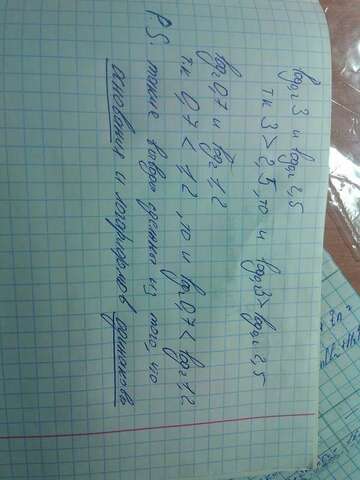 log₂3 и log₂2,5
т.к 3 > 2,5, то и log₂3 > log₂2,5
log₂0,7 и log₂1,2
т.к 0,7 < 1,2, то и log₂0,7 < log₂1,2
P.S. такие выводы сделаны из того, что
основания и логарифмов одинаковы